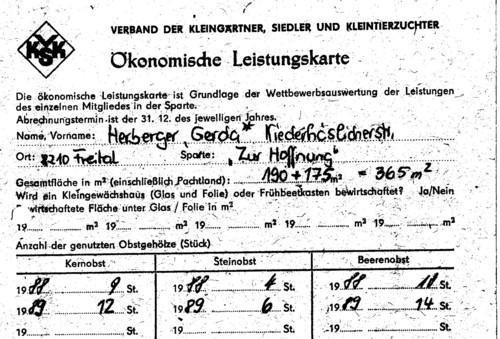 VKSK
VERBAND DER KLEINGÄRTNER, SIEDLER UND KLEINTIERZÜCHTER
Ökonomische Leistungskarte
Die ökonomische Leistungskarte ist Grundlage der Wettbewerbsauswertung der Leistungen
des einzelnen Mitgliedes in der Sparte.
Abrechnungstermin ist der 31. 12. des jeweiligen Jahres.
Name, Vorname: Herberger, Gerda *
Ort: 8210 Freital Sparte: „Zur Hoffnung"
Gesamtfläche in m² (einschließlich Pachtland): 190 + 175 m² = 365 m²
Wird ein Kleingewächshaus (Glas und Folie) oder Frühbeetkasten bewirtschaftet? Ja/Nein
wirtschaftete Fläche unter Glas / Folie in m²
19 m² 19 m² 19 m² 19 m² 19 m²
Anzahl der genutzten Obstgehölze (Stück)
Kernobst Steinobst Beerenobst
1988 9 St. 1988 4 St. 1988 St.
1989 12 St. 1989 6 St. 1989 14 St.
19 St. 19 St. 19 St.